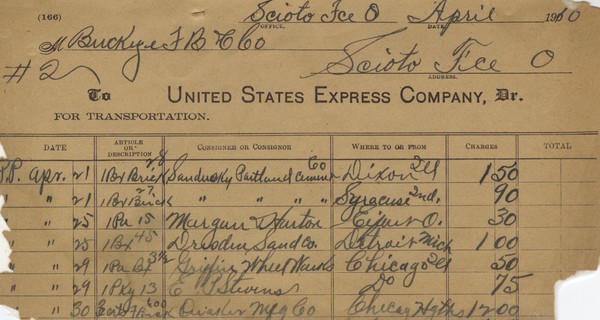 (166) Scioto Fce O April 1910
OFFICE, DATE,
M Buckeye F B & Co
#2 Scioto Fce O
ADDRESS.
To UNITED STATES EXPRESS COMPANY, Dr.
FOR TRANSPORTATION.
DATE ARTICLE OR DESCRIPTION CONSIGNEE OR CONSIGNOR WHERE TO OR FROM CHARGES TOTAL
Apr. 21 1 Bx Brick 28 Sandusky Portland Cement Co Dixon Ill 1 50
" 21 1 Bx Brick 27 " " " " Syracuse Ind. 90
" 25 1 Pa 15 Morgan O. 30
" 25 1 Bx 45 Dresden Sand Co. Detroit Mich 1 00
" 29 1 Pa Bx Griffin Wheel Works Chicago Ill 50
" 29 1 Pkg 13 E Stevens Do 75
" 30 Brick 600 Quaker Mfg Co Chicag Hgths 12 00